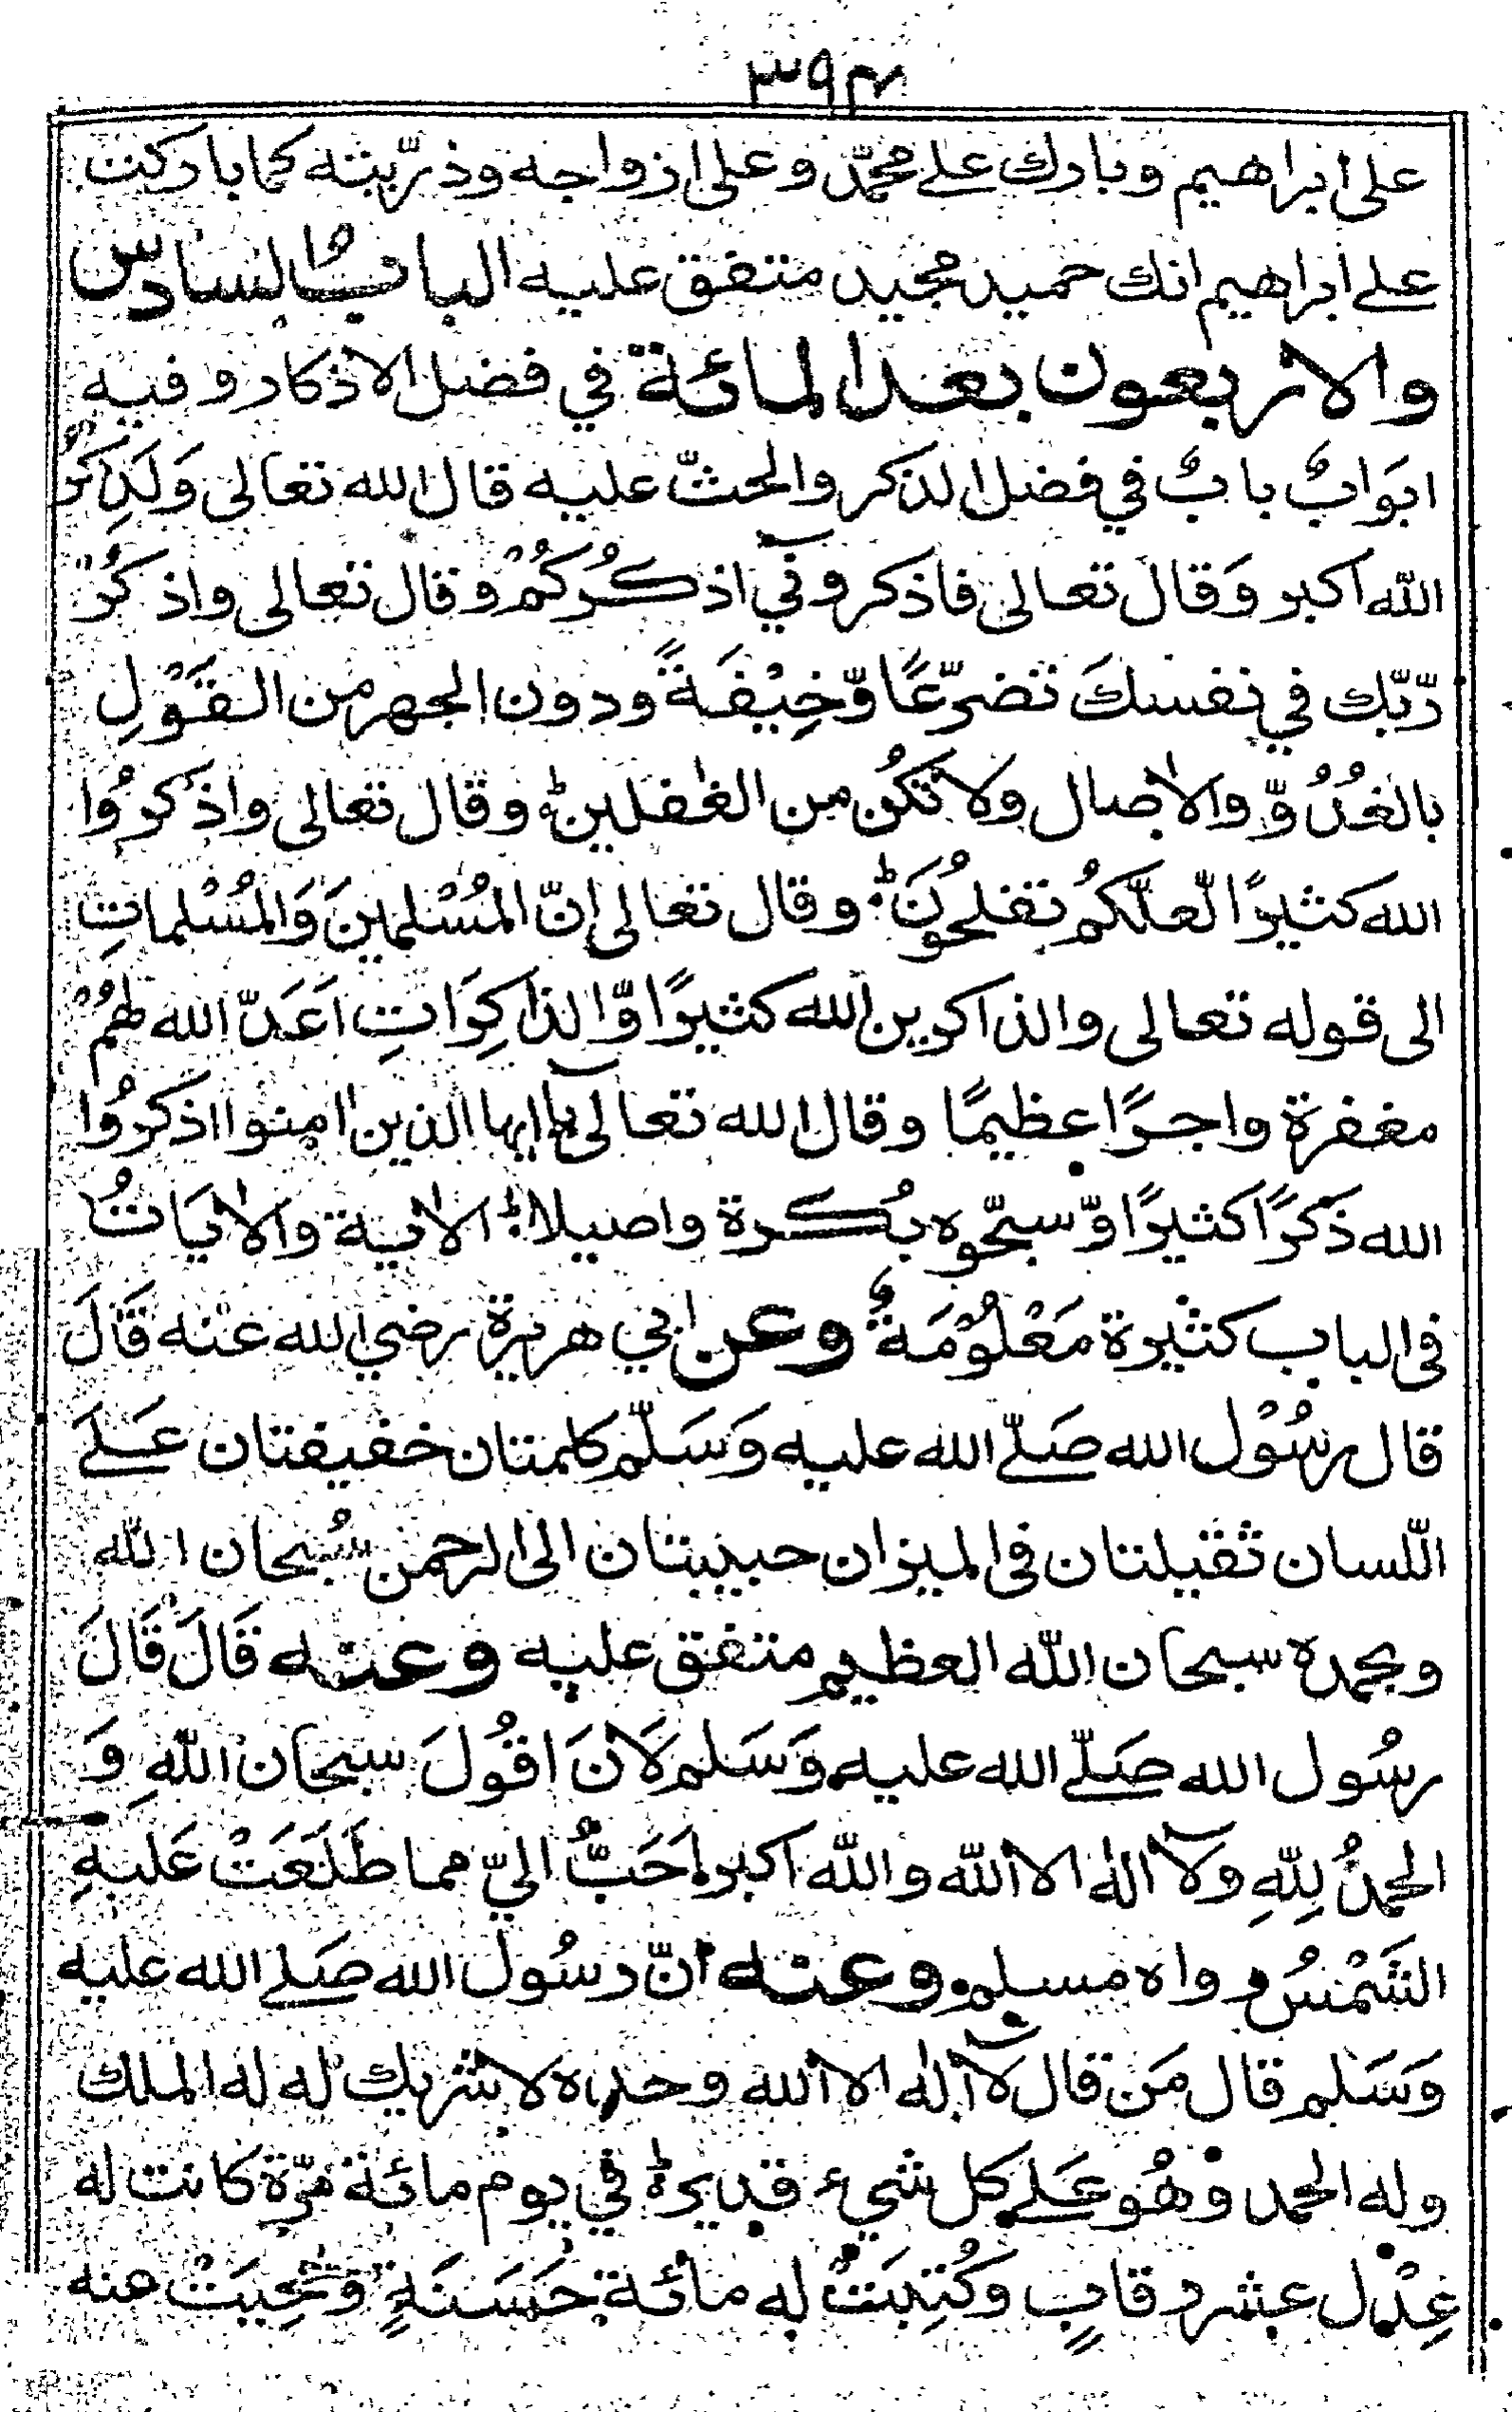 ۳۹۴
على ابراهيم وبارك على محمّد وعلى ازواجه وذرّيته كما باركت
على ابراهيم انك حميد مجيد متفق عليه الباب السادس
والاربعون بعد المائة في فضل الاذكار وفيه
ابوابٌ بابٌ في فضل الذكر والحثّ عليه قال الله تعالى وَلَذِكرُ
الله اكبر وَقال تعالى فاذكروني اذكُركُمْ وقال تعالى واذكُرْ
رّبّك في نفسكَ تضرّعًا وّخِيْفَةً ودون الجهر من القَوْلِ
بالغُدُوِّ والاٰصال ولا تكُن من الغٰفلين وقال تعالى واذكرُوا
الله كثيرًا لّعلّكُم تفلحُونَ وقال تعالى اِنّ المُسْلمينَ وَالمُسْلماتِ
الى قوله تعالى والذاكرين الله كثيرًا وّالذاكِرَاتِ اَعَدّ الله لهُمْ
مغفرة واجرًا عظيمًا وقال الله تعالى يٓاايها الذين اٰمنوا اذكرُوا
الله ذكرًا كثيرًا وّسبّحُوه بُكرة واصيلا الاٰية والاٰيَاتُ
فى الباب كثيرة مَعْلُوْمَةٌ وعن ابي هريرة رضي الله عنه قَالَ
قال رسُوْل الله صَلّى الله عليه وَسَلّم كلمتان خفيفتان عَلَى
اللّسان ثقيلتان فى الميزان حبيبتان الى الرحمن سُبحان الله
وبحمده سبحان الله العظيم متفق عليه وعنه قَالَ قَالَ
رسُول الله صَلّى الله عليه وَسَلم لَانَ اقُولَ سبحان اللهِ وَ
الحمدُ لِلّهِ ولآ الٰه الا الله والله اكبر اَحَبُّ اليّ مما طَلَعَتْ عَليهِ
الشَّمْسُ رواه مسلم وعنه انّ رسُول الله صَلى الله عليه
وَسَلم قال مَن قال لآ الٰه الا الله وحده لا شريك له له الملك
وله الحمد وهُو عَلى كل شيء قدير في يوم مائة مرّة كانت له
عِدْل عشر رقابٍ وكُتِبَتْ له مائة حَسَنَةٍ ومُحِيَتْ عنه